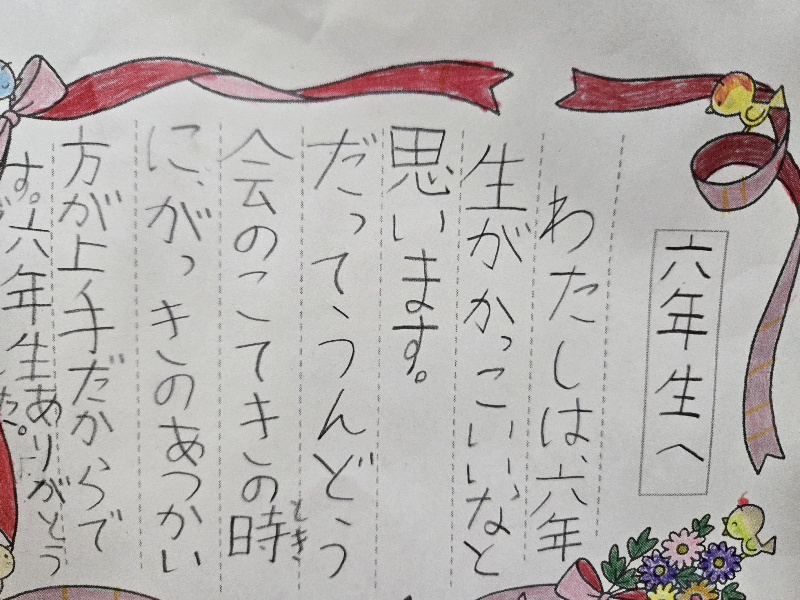 六年生へ
わたしは、六年
生がかっこいい、なと
思います。
だって、うんどう
会のこてきの時
とき
に、がっきのあつかい
方が上手だからで
す。六年生ありがとう
た。